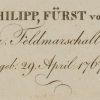 HILIPP, FÜRST vo
Feldmarschall
geb: 29. April 176